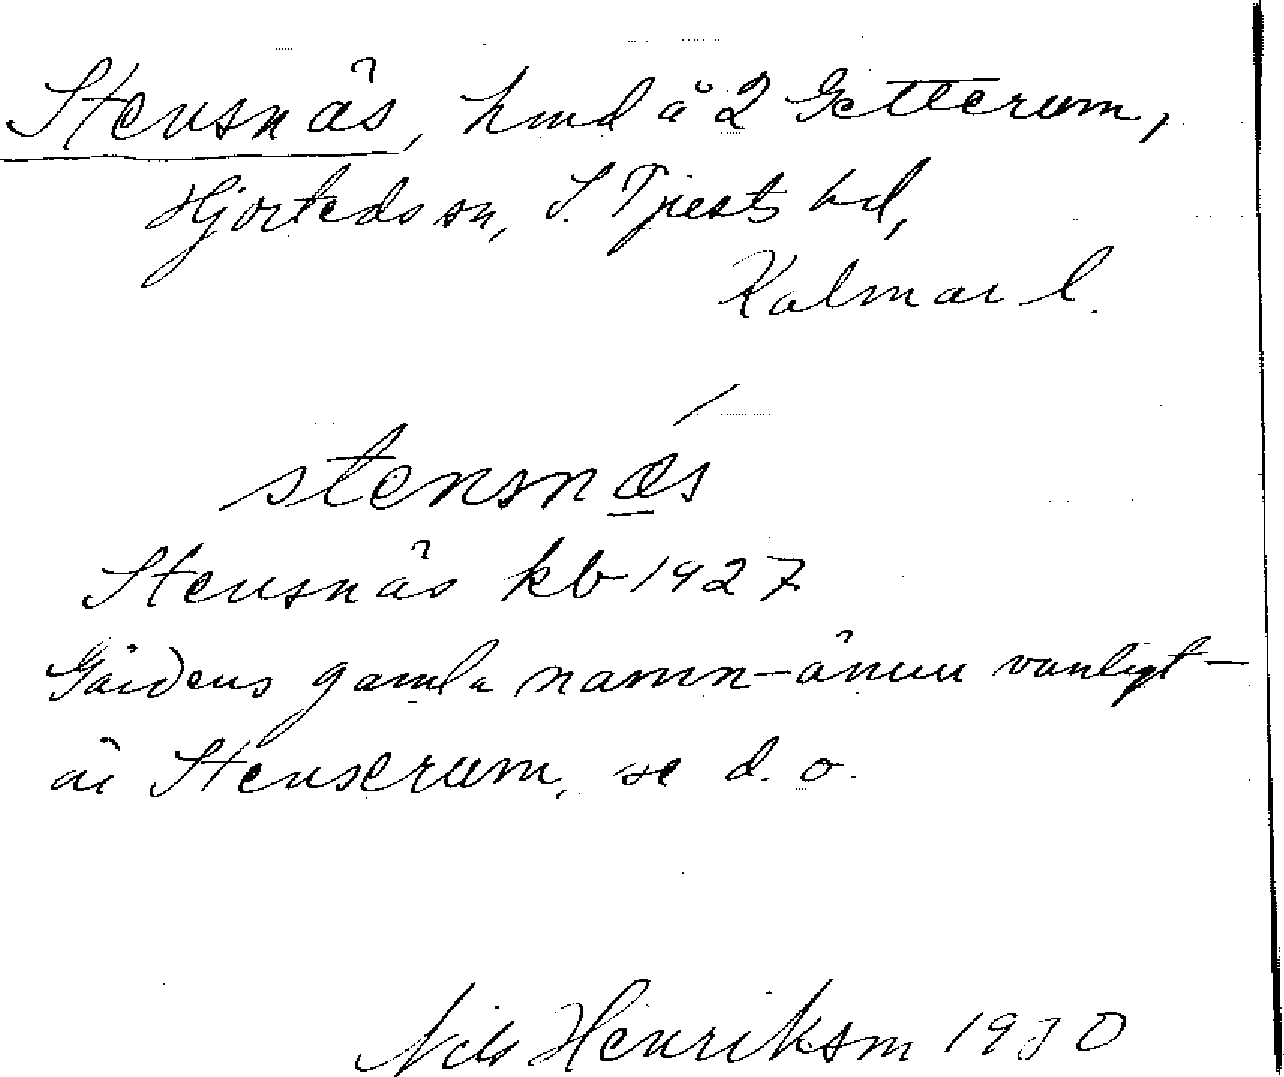 Stensnäs, hmd å 2 Getterum,
Hjorteds sn, S. Tjusts hd,
Kalmar l.
stensnæs
Stensnäs kb 1927
Gårdens gamla namn – ännu vanligt –
är Stenserum, se d. o.
Nils Henrikson 1930